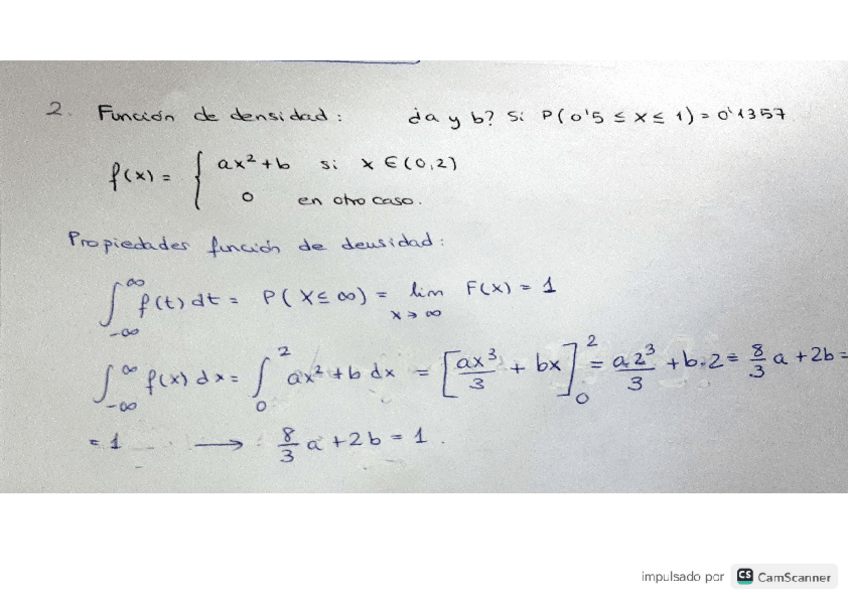 2. Función de densidad: ¿a y b? Si P(0'5 ≤ x ≤ 1) = 0'1357
f(x) = { ax² + b si x ∈ (0,2)
0 en otro caso.
Propiedades función de densidad:
∫_{-∞}^{∞} f(t) dt = P(X ≤ ∞) = lim_{x→∞} F(x) = 1
∫_{-∞}^{∞} f(x) dx = ∫_0^2 ax² + b dx = [ax³/3 + bx]_0^2 = a2³/3 + b·2 = 8/3 a + 2b =
= 1 → 8/3 a + 2b = 1.
impulsado por CS CamScanner